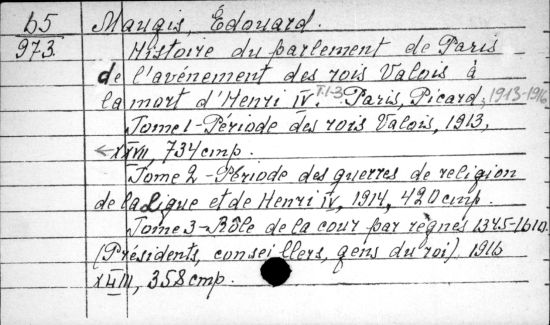 b5 Maugis, Édouard.
973. Histoire du parlement de Paris
de l'avénement des rois Valois à
la mort d'Henri IV. T.1-3. Paris, Picard, 1913-1916
Tome 1 - Période des rois Valois, 1913,
XXVII, 734 cmp.
Tome 2 - Période des guerres de religion
de la Ligue et de Henri IV, 1914, 420 cmp.
Tome 3 - Rôle de la cour par règnes 1345-1610.
(Présidents, conseillers, gens du roi) 1916
XLIII, 358 cmp.